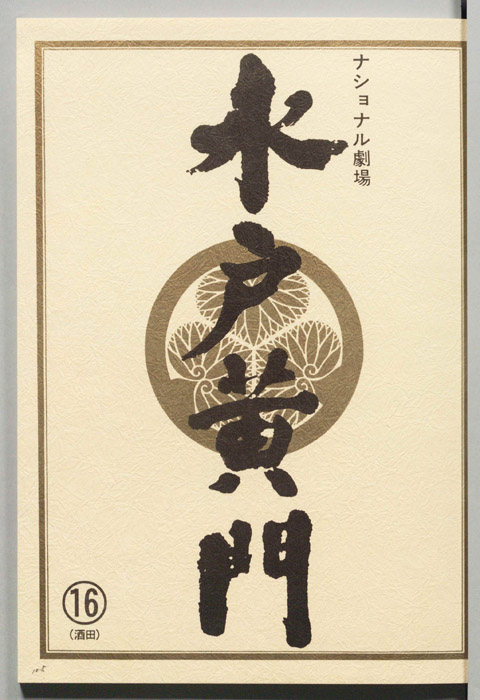 ナショナル劇場
水戸黄門
⑯
(酒田)